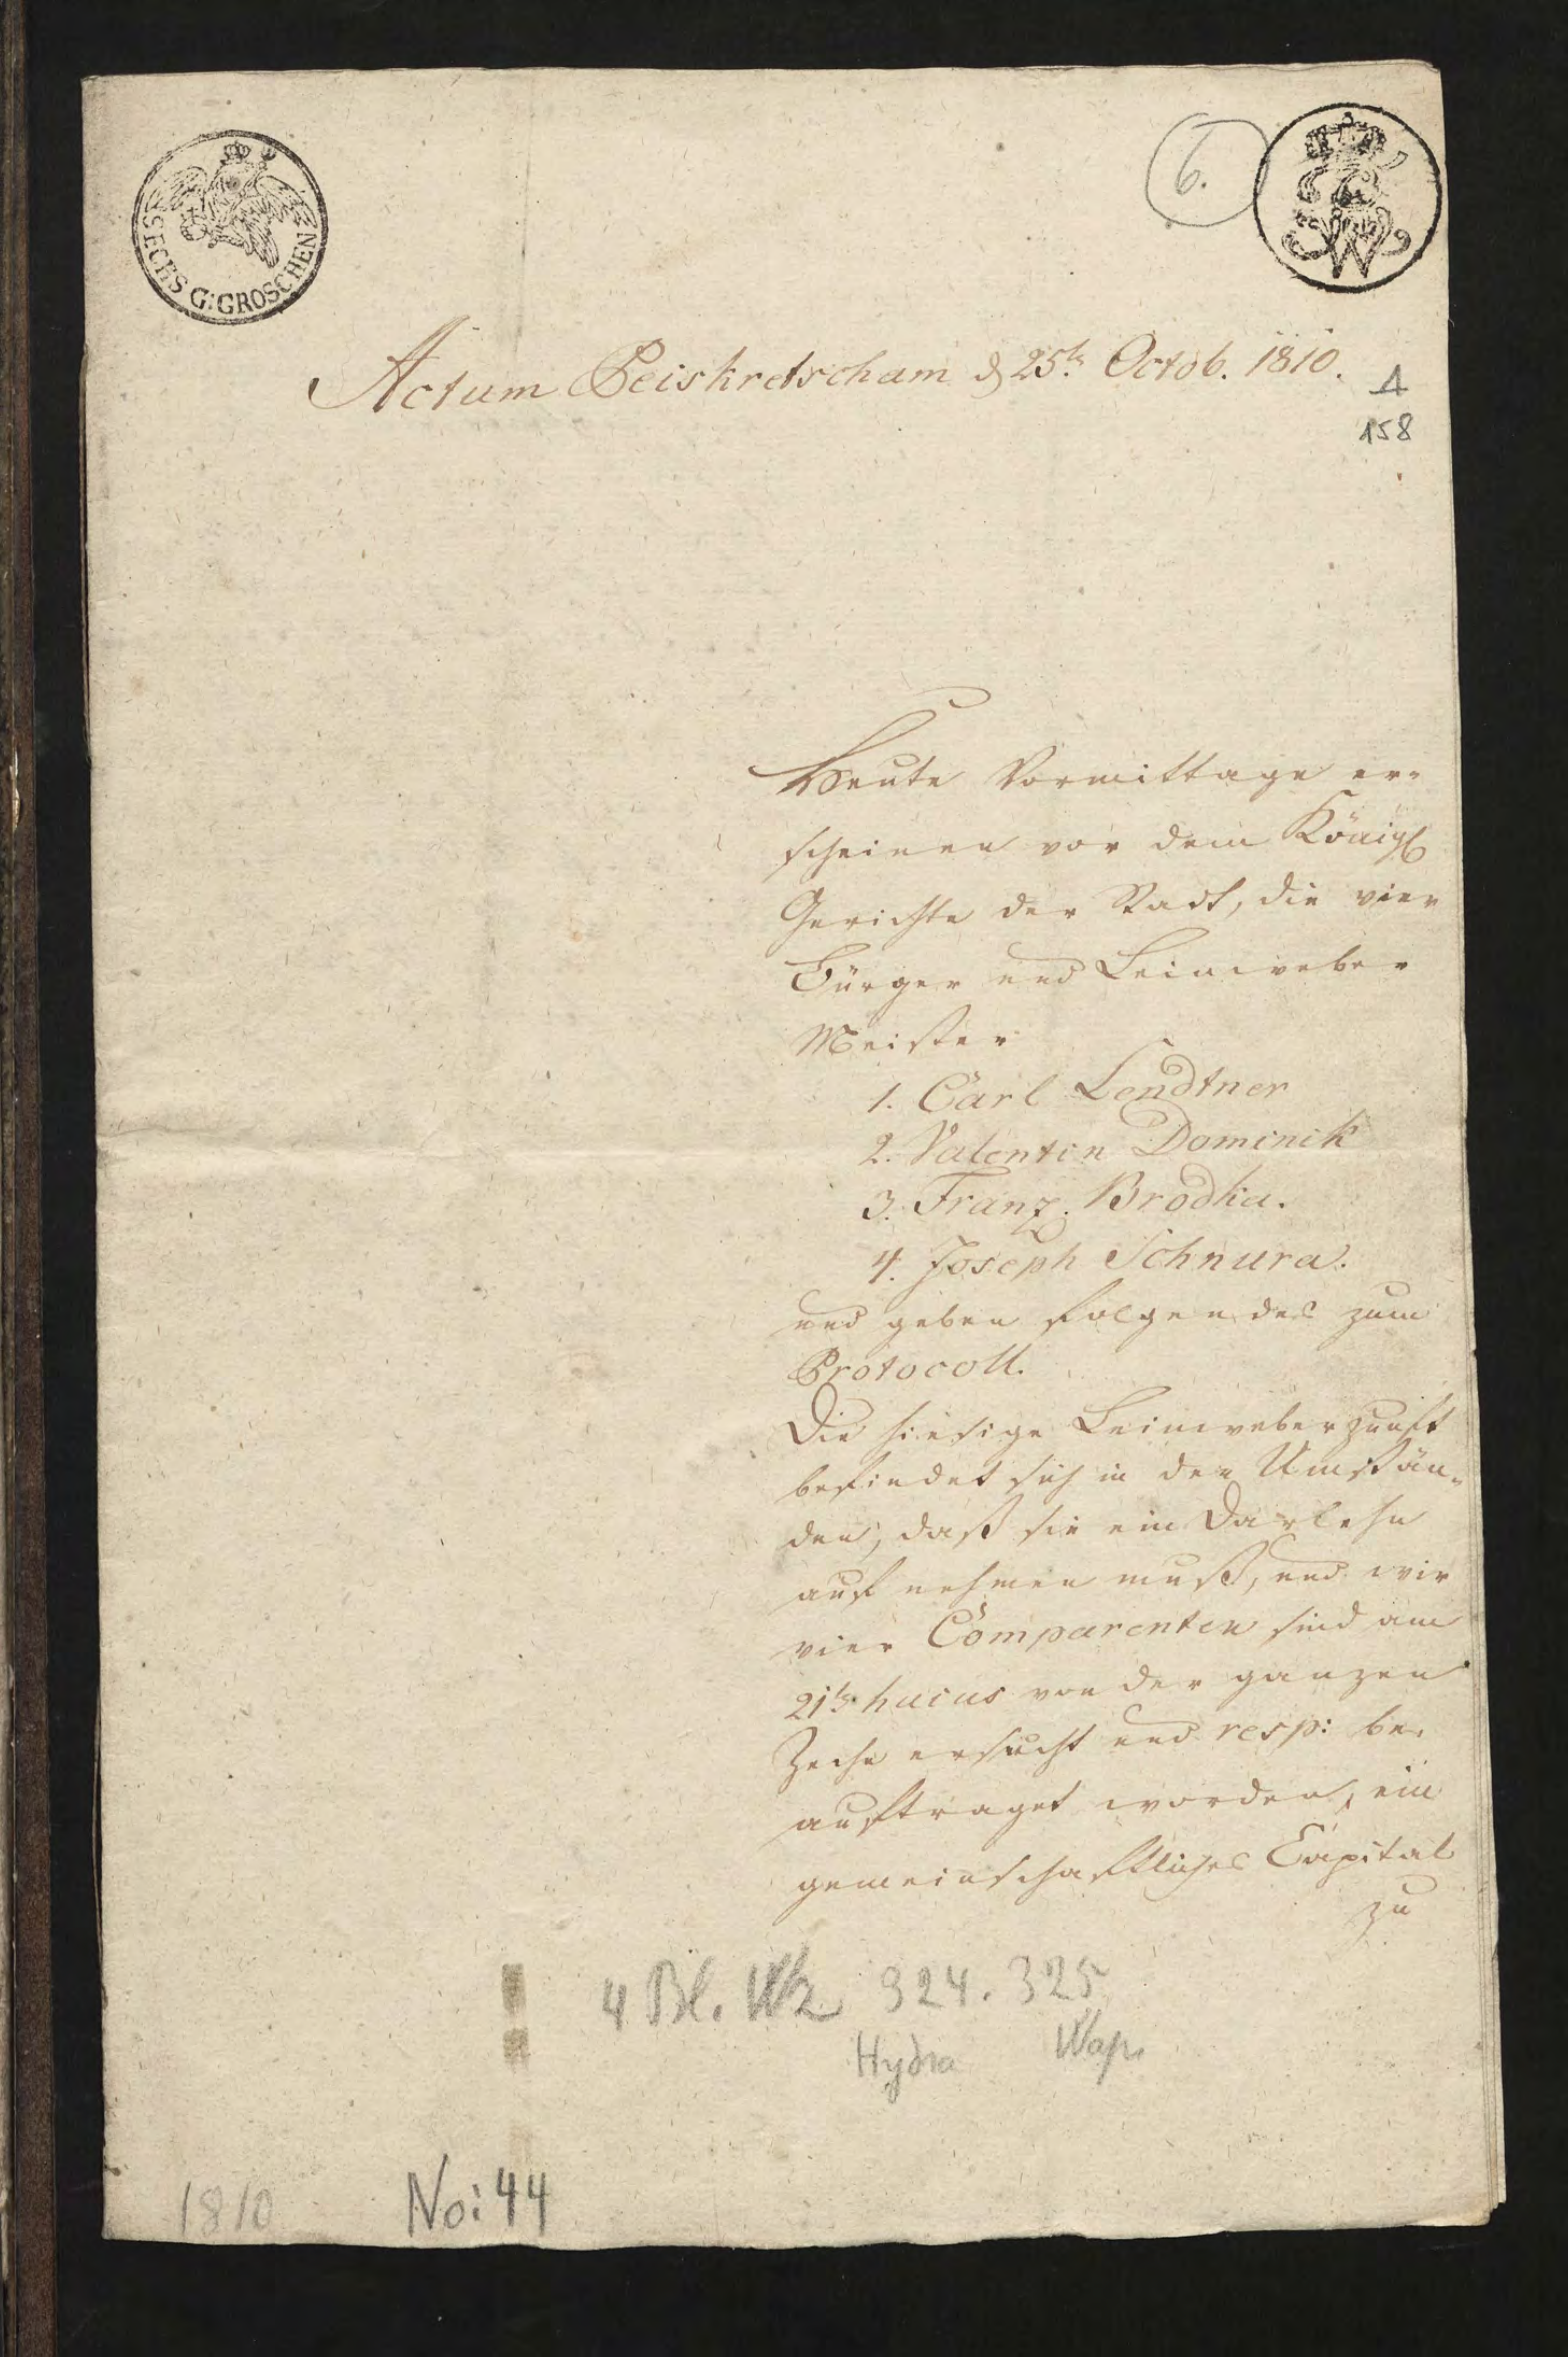 SECHS G:GROSCHEN
6.
FW
Actum Peiskretscham d 25t. Octob. 1810.
1
158
Heute Vormittage er-
scheinen vor dem Königl
Gerichte der Stadt, die vier
Bürger und Leinweber
Meister
1. Carl Lendtner
2. Valentin Dominik
3. Franz Brodka.
4. Joseph Schnura.
und geben folgendes zum
Protocoll.
Die hiesige Leinweberzunft
befindet sich in den Umstän-
den, daß sie ein Darlehn
aufnehmen muß, und wir
vier Comparenten sind am
21t. huius von der ganzen
Zeche ersucht und resp: be-
auftraget worden, ein
gemeinschaftliches Capital
zu
4 Bl. Wz 324. 325
Hydra Wap.
1810 No: 44